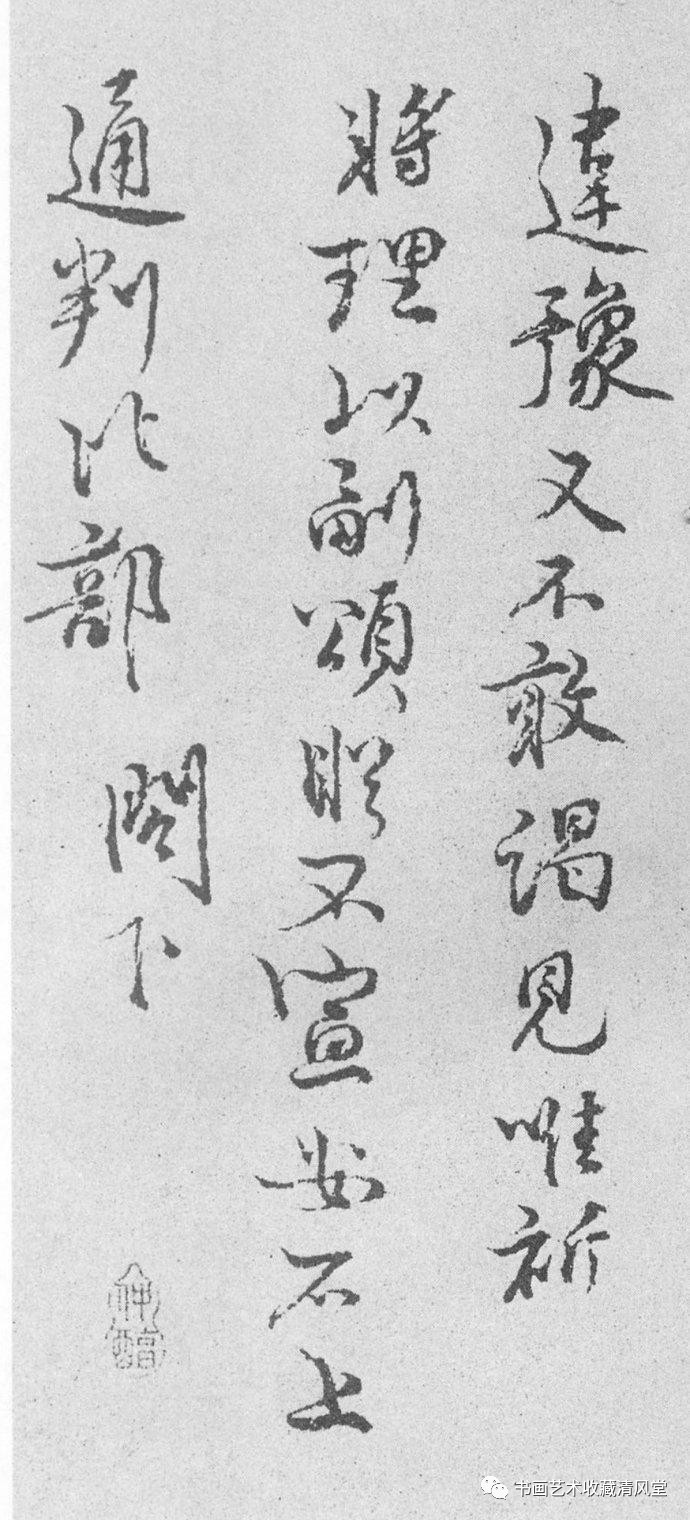 違豫又不敢謁見唯祈
將理以副頌盻不宣安石上
通判比部 閣下
仲醇
书画艺术收藏清风堂